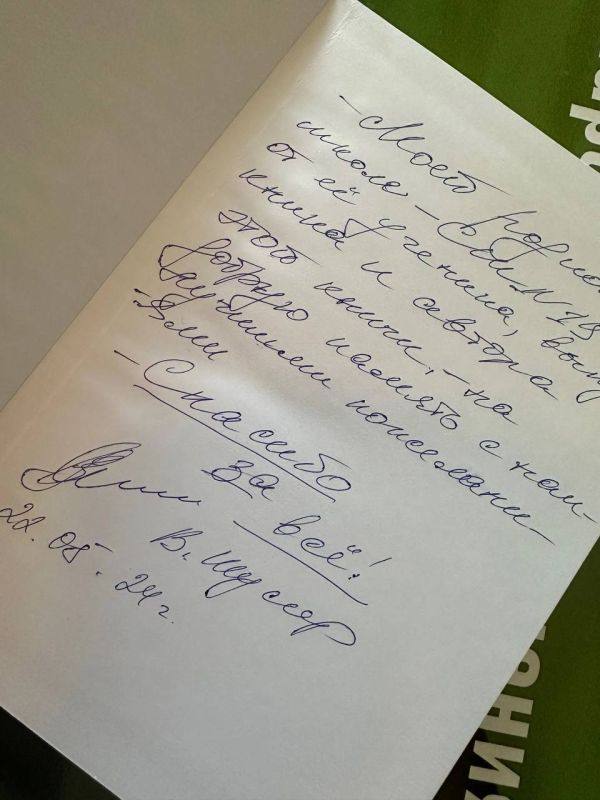 - Моей родной
школе - СШ №18
от её ученика, вып
кника и автора
этой книги, - на
добрую память с наи-
лучшими пожелани-
- Спасибо
за
всё!
В. Шуслер
22.05.24г.